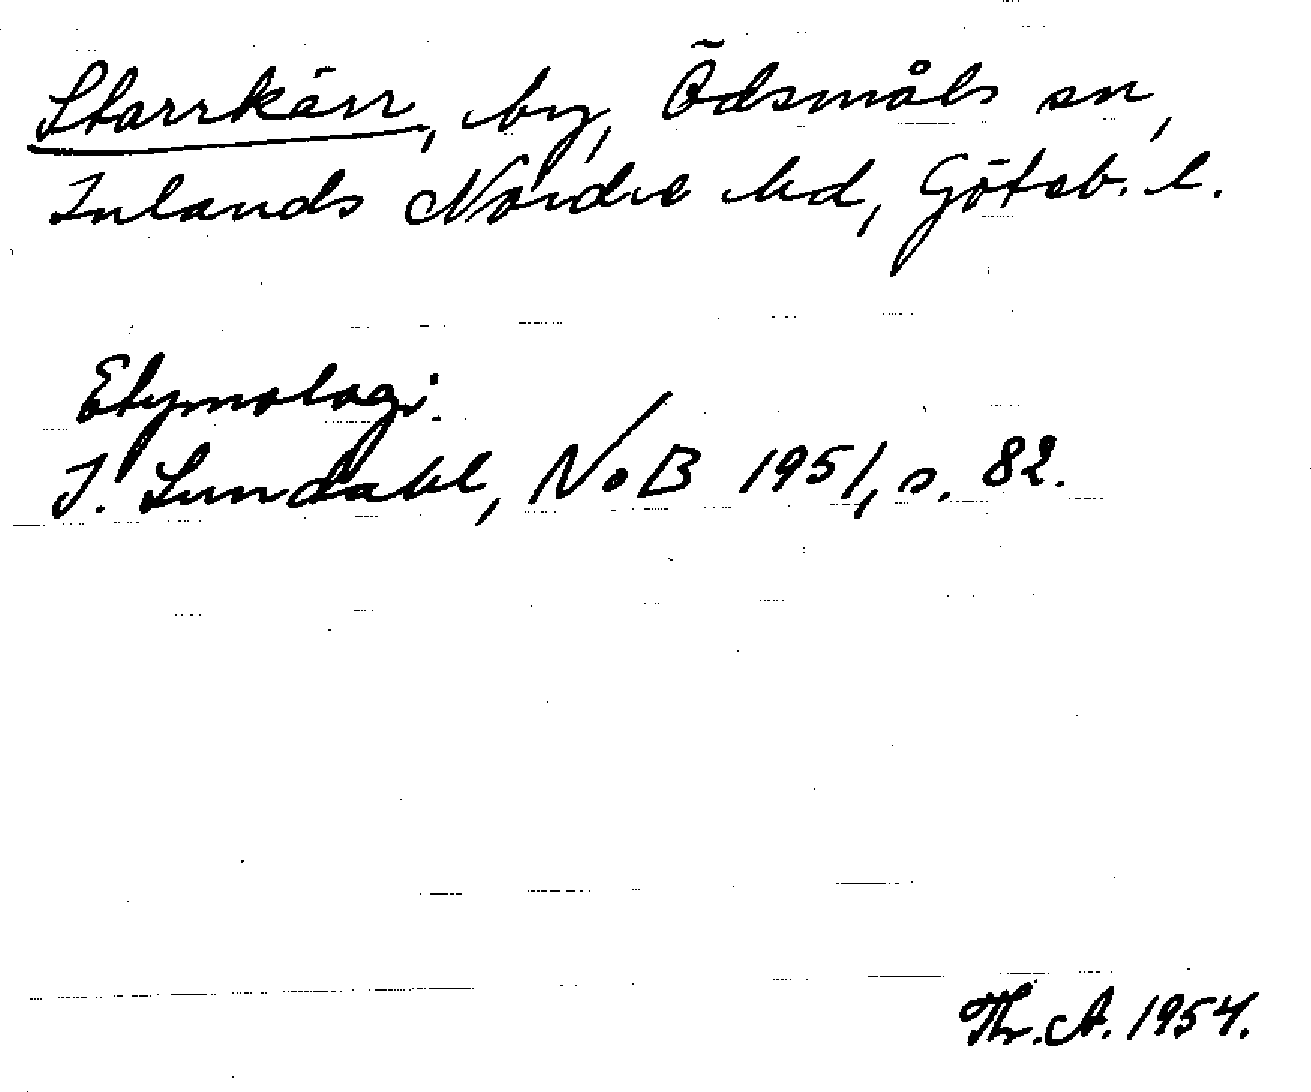 Starrkärr, by, Ödsmåls sn,
Inlands Nordre hd, Göteb. l.
Etymologi.
I. Lundahl, NoB 1951, s. 82.
Th. A. 1954.